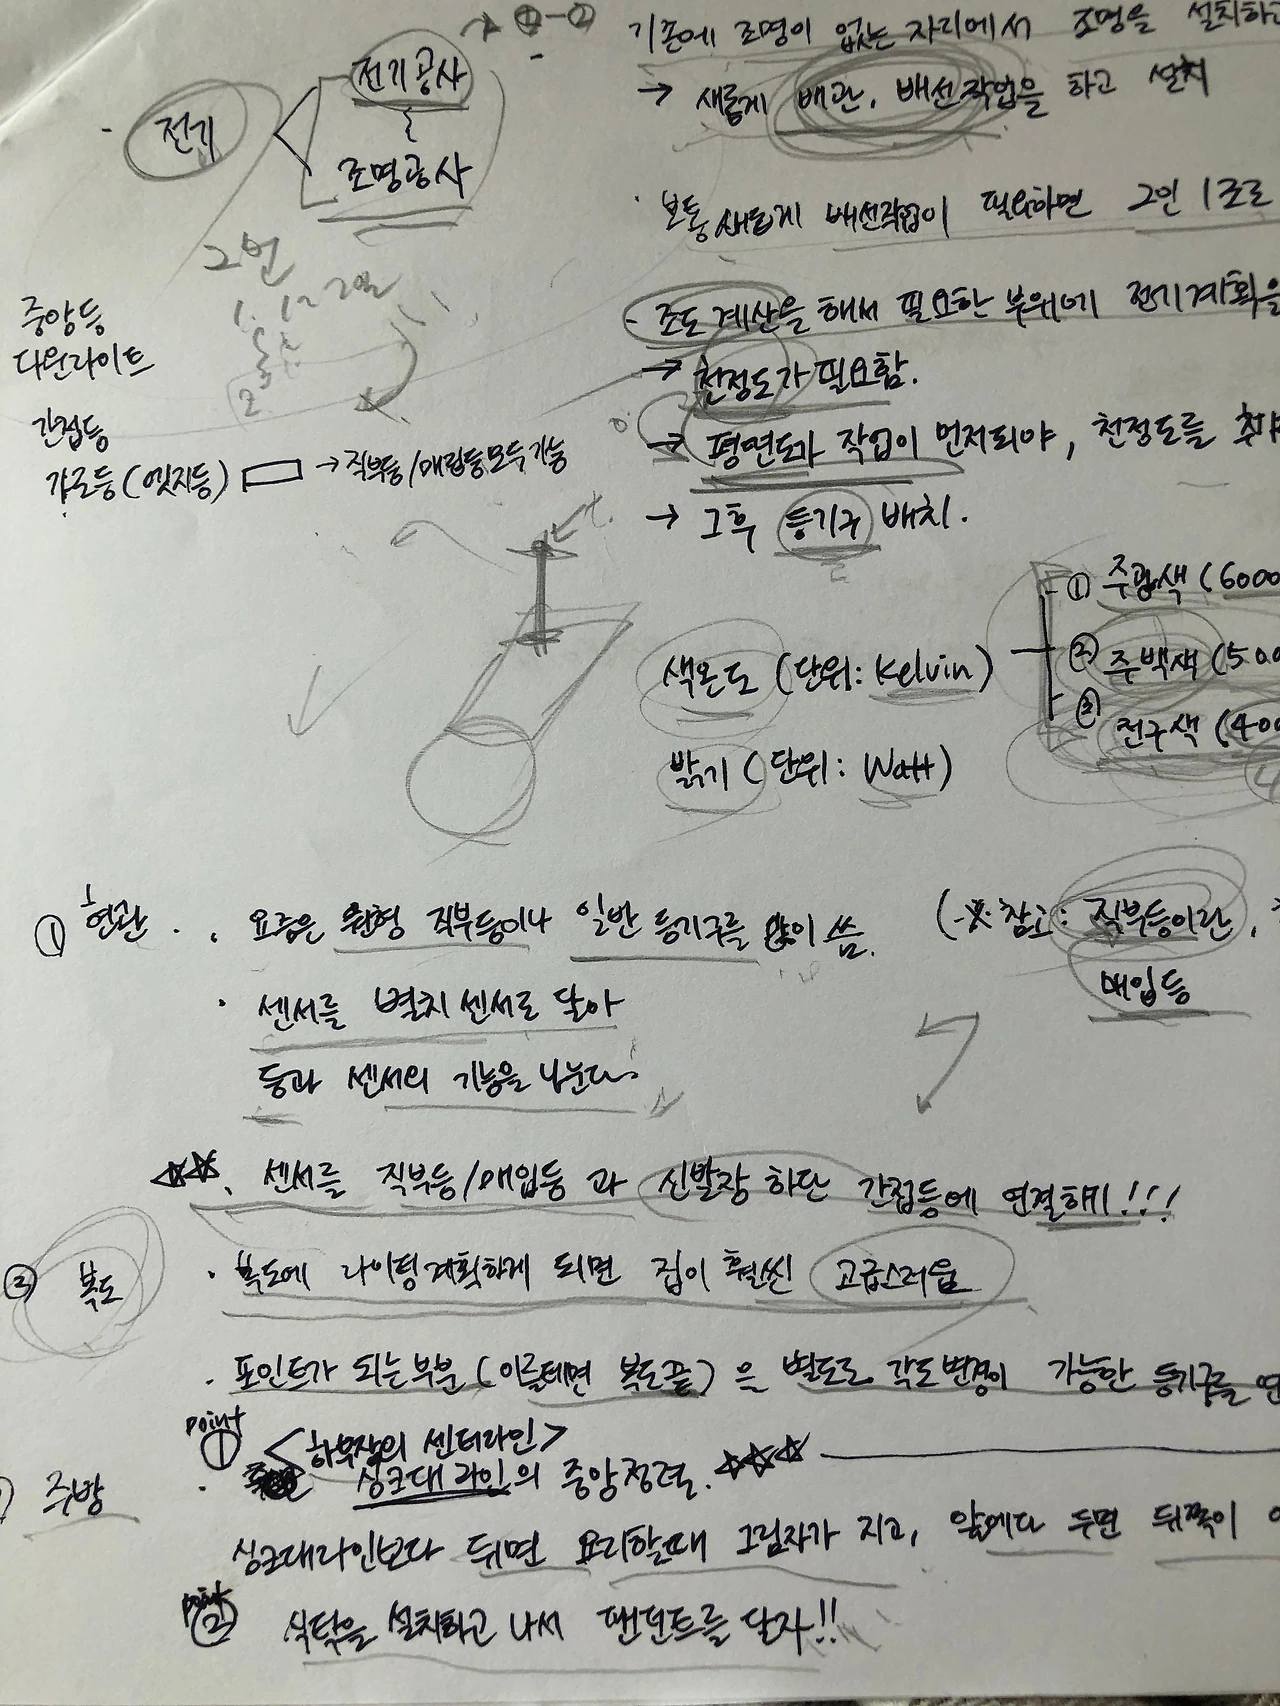 ①-②
기존에 조명이 없는 자리에서 조명을 설치하고
→ 새롭게 배관, 배선작업을 하고 설치
- 전기
전기공사
조명공사
· 보통 새롭게 배선작업이 필요하면 2인 1조로
2번
1. 1~2일
2
중앙등
다운라이트
간접등
각로등(엣지등) → 직부등/매립등 모두 가능
- 조도계산을 해서 필요한 부위에 전기계획을
→ 천정도가 필요함.
→ 평면도가 작업이 먼저되야, 천정도를
→ 그후 등기구 배치.
색온도 (단위: Kelvin)
① 주광색 (6000
② 주백색 (500
③ 전구색 (400
밝기 (단위: Watt)
① 현관 · 요즘은 원형 직부등이나 일반 등기구를 많이 씀. (※참고: 직부등이란,
매입등
· 센서를 별치센서로 달아
등과 센서의 기능을 나눈다.
☆☆. 센서를 직부등/매입등 과 신발장 하단 간접등에 연결하기!!!
② 복도 · 복도에 라이팅계획하게 되면 집이 훨씬 고급스러움
· 포인트가 되는부분(이를테면 복도끝)은 별도로 각도변경이 가능한 등기구를
point ① <하부장의 센터라인>
주방 · 싱크대 라인의 중앙정렬. ☆☆☆
싱크대라인보다 뒤면 요리할때 그림자가 지고, 앞에다 두면 뒤쪽이
point ② 식탁을 설치하고 나서 팬던트를 달자!!